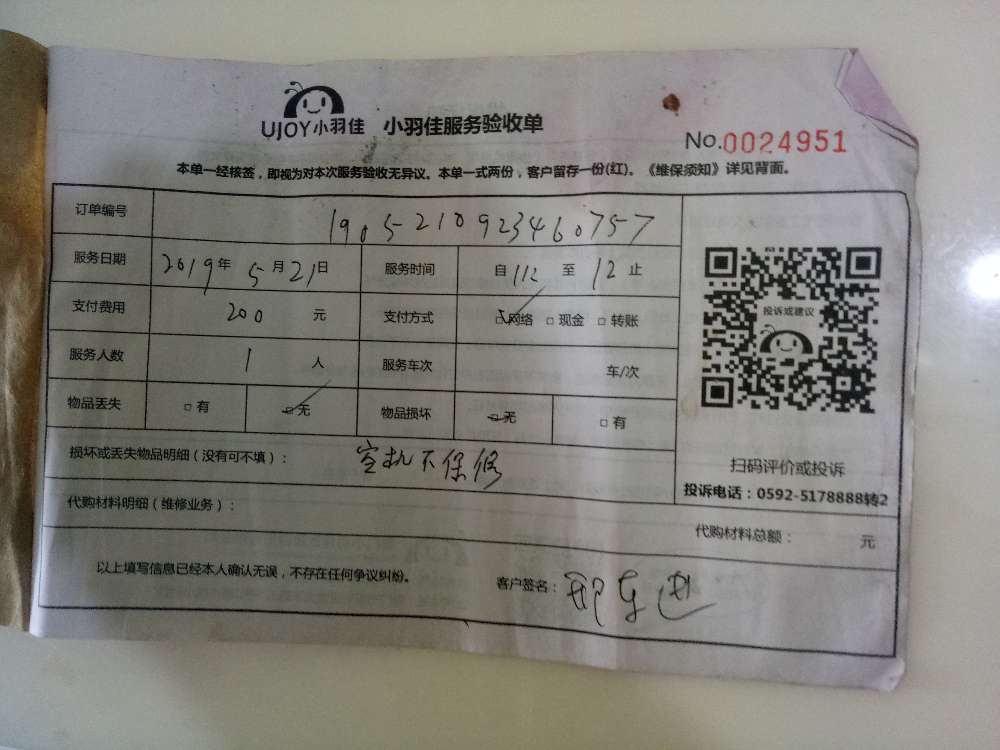 UJOY小羽佳 小羽佳服务验收单
No.0024951
本单一经核签，即视为对本次服务验收无异议。本单一式两份，客户留存一份(红)。《维保须知》详见背面。
订单编号 1905210923460757
服务日期 2019年 5月21日 服务时间 自 112 至 12止
支付费用 200 元 支付方式 □网络 □现金 □转账
投诉或建议
服务人数 1 人 服务车次 车/次
物品丢失 □有 □无 物品损坏 □无 □有
损坏或丢失物品明细（没有可不填）： 空机不保修
扫码评价或投诉
投诉电话：0592-5178888转2
代购材料明细（维修业务）：
代购材料总额： 元
以上填写信息已经本人确认无误，不存在任何争议纠纷。 客户签名：